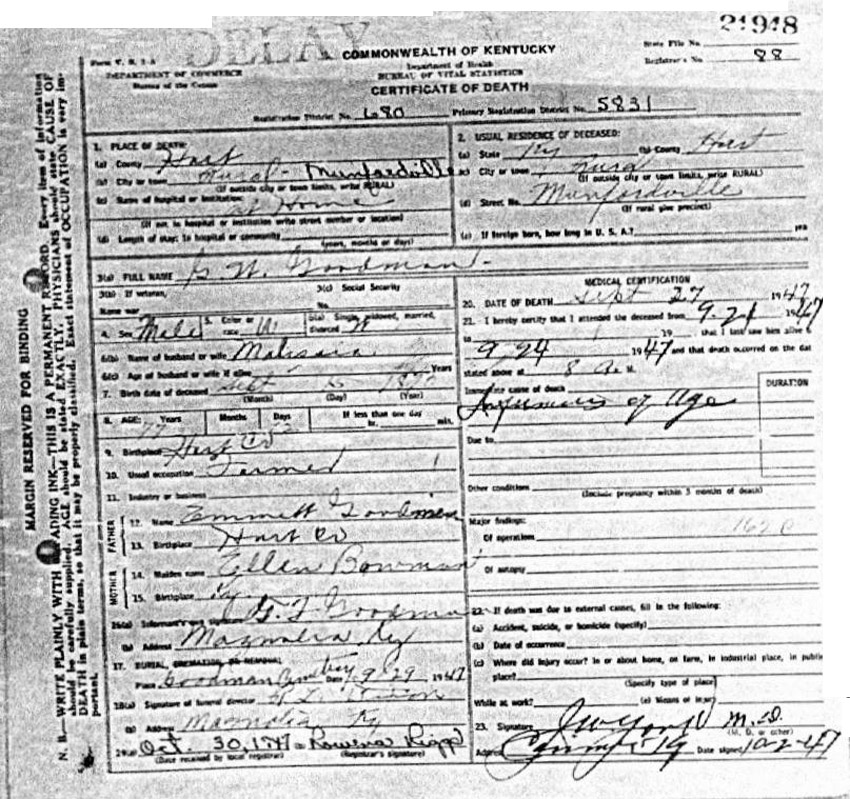 DELAY
21948
COMMONWEALTH OF KENTUCKY
State File No.
Form V. S. 1-A
Department of Health
Registrar's No. 88
DEPARTMENT OF COMMERCE
BUREAU OF VITAL STATISTICS
Bureau of the Census
CERTIFICATE OF DEATH
Registration District No. 680 Primary Registration District No. 5831
MARGIN RESERVED FOR BINDING
N. B.—WRITE PLAINLY WITH ADING INK—THIS IS A PERMANENT RECORD. Every item of information
should be carefully supplied. AGE should be stated EXACTLY. PHYSICIANS should state CAUSE OF
DEATH in plain terms, so that it may be properly classified. Exact statement of OCCUPATION is very im-
portant.
1. PLACE OF DEATH:
(a) County Hart
(b) City or town Rural - Munfordville
(If outside city or town limits, write RURAL)
(c) Name of hospital or institution:
at Home
(If not in hospital or institution write street number or location)
(d) Length of stay: In hospital or community
(years, months or days)
2. USUAL RESIDENCE OF DECEASED:
(a) State Ky (b) County Hart
(c) City or town Rural
(If outside city or town limits, write RURAL)
(d) Street No. Munfordville
(If rural give precinct)
(e) If foreign born, how long in U. S. A.? yea
3(a) FULL NAME G. W. Goodman
3(b) If veteran, 3(c) Social Security
Name war No.
4. Sex Male 5. Color or race W 6(a) Single, widowed, married, divorced W
6(b) Name of husband or wife
6(c) Age of husband or wife if alive Years
7. Birth date of deceased Sept 15
(Month) (Day) (Year)
8. AGE: Years 77 Months Days If less than one day
hr. min.
9. Birthplace Hart Co
10. Usual occupation Farmer
11. Industry or business
FATHER
12. Name Emmett Goodman
13. Birthplace Hart Co
MOTHER
14. Maiden name Ellen Bowman
15. Birthplace Ky
16(a) Informant's own signature G. T. Goodman
(b) Address Magnolia Ky
17. BURIAL, CREMATION OR REMOVAL
Place Goodman Cemetery Date 9-29 1947
18(a) Signature of funeral director
(b) Address Magnolia Ky
19(a) Oct. 30, 1947 Rowena
(Date received by local registrar) (Registrar's signature)
MEDICAL CERTIFICATION
20. DATE OF DEATH Sept 27 1947
21. I hereby certify that I attended the deceased from 9-24 1947
to 19 , that I last saw him alive
9-24 1947 and that death occurred on the dat
stated above at 8 a. M.
Immediate cause of death DURATION
Infirmities of Age
Due to
Other conditions
(Include pregnancy within 3 months of death)
Major findings:
Of operations 162
Of autopsy
22. If death was due to external causes, fill in the following:
(a) Accident, suicide, or homicide (specify)
(b) Date of occurrence
(c) Where did injury occur? In or about home, on farm, in industrial place, in public
place?
(Specify type of place)
While at work? (e) Means of injury
23. Signature M.D.
(M. D. or other)
Address Date signed 10-2-47